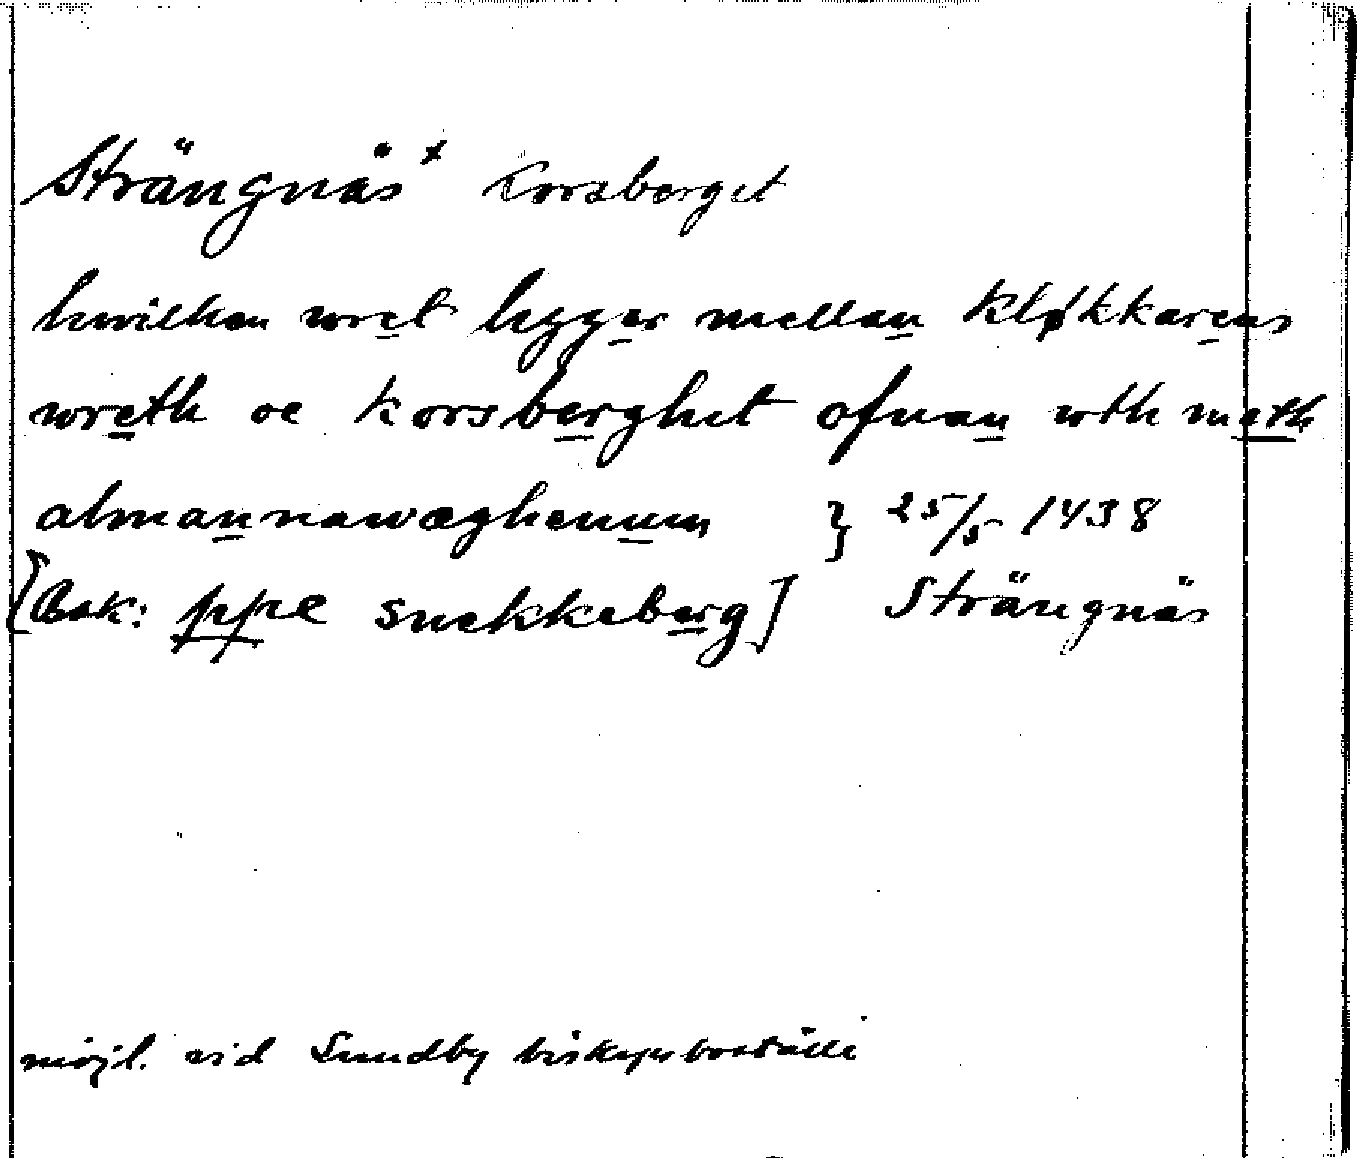 Strängnäs x Korsberget
hwilken wret ligger mellan kløkkarens
wreth oc korsberghet ofnan wth meth
almannawæghenum } 25/5 1438
[Bak: ppe snekkeberg] Strängnäs
möjl. vid Sundby biskopsboställe